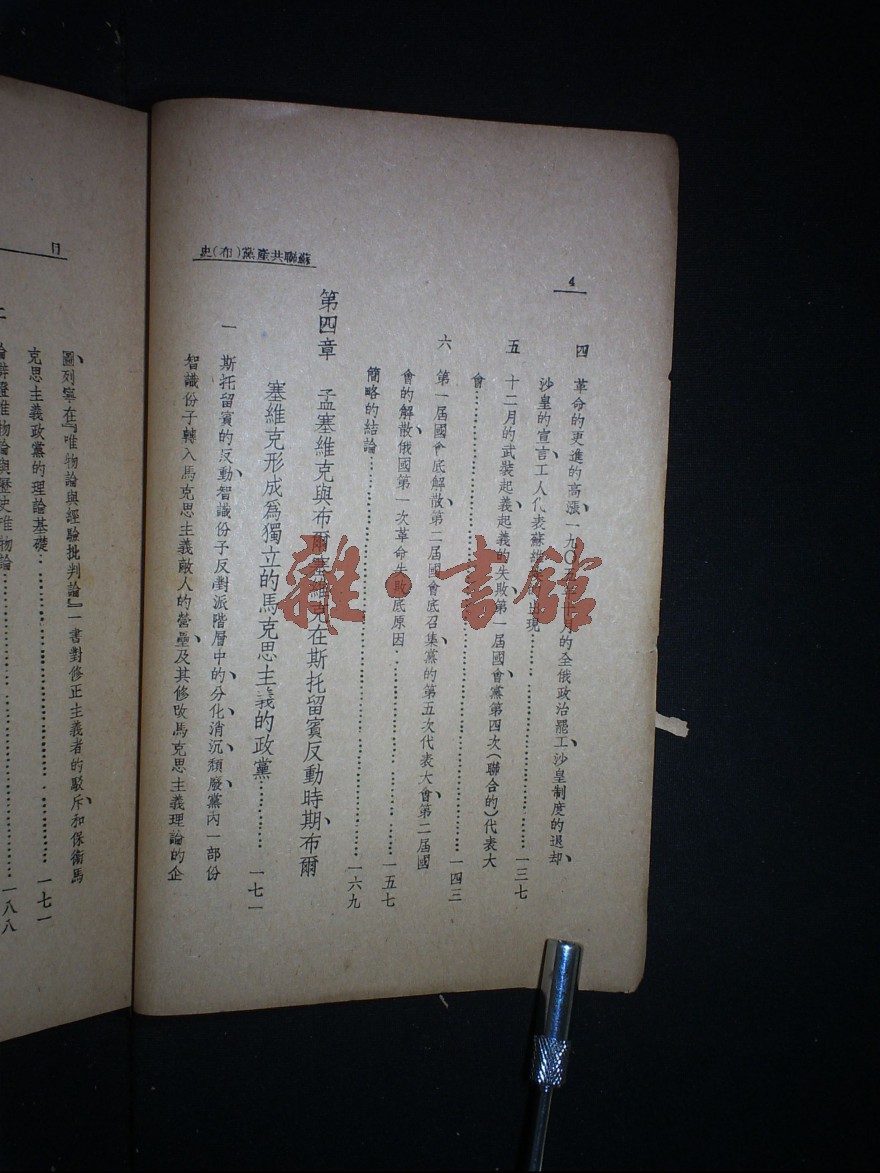 蘇聯共產黨(布)史
4
四 革命的更進的高漲、一九〇五年十月的全俄政治罷工、沙皇制度的退却、
沙皇的宣言、工人代表蘇維埃的出現……一三七
五 十二月的武裝起義、起義的失敗、第一屆國會、黨第四次(聯合的)代表大
會……一四三
六 第一屆國會底解散、第二屆國會底召集、黨的第五次代表大會、第二屆國
會的解散、俄國第一次革命失敗底原因……一五七
簡略的結論……一六九
第四章 孟塞維克與布爾塞維克在斯托留賓反動時期、布爾
塞維克形成為獨立的馬克思主義的政黨……一七一
一 斯托留賓的反動、智識份子反對派階層中的分化、消沉、頹廢、黨內一部份
智識份子轉入馬克思主義敵人的營壘、及其修改馬克思主義理論的企
圖、列寧在『唯物論與經驗批判論』一書對修正主義者的駁斥、和保衛馬
克思主義政黨的理論基礎……一七一
二 論辯證唯物論與歷史唯物論……一八八
目
雜·書館